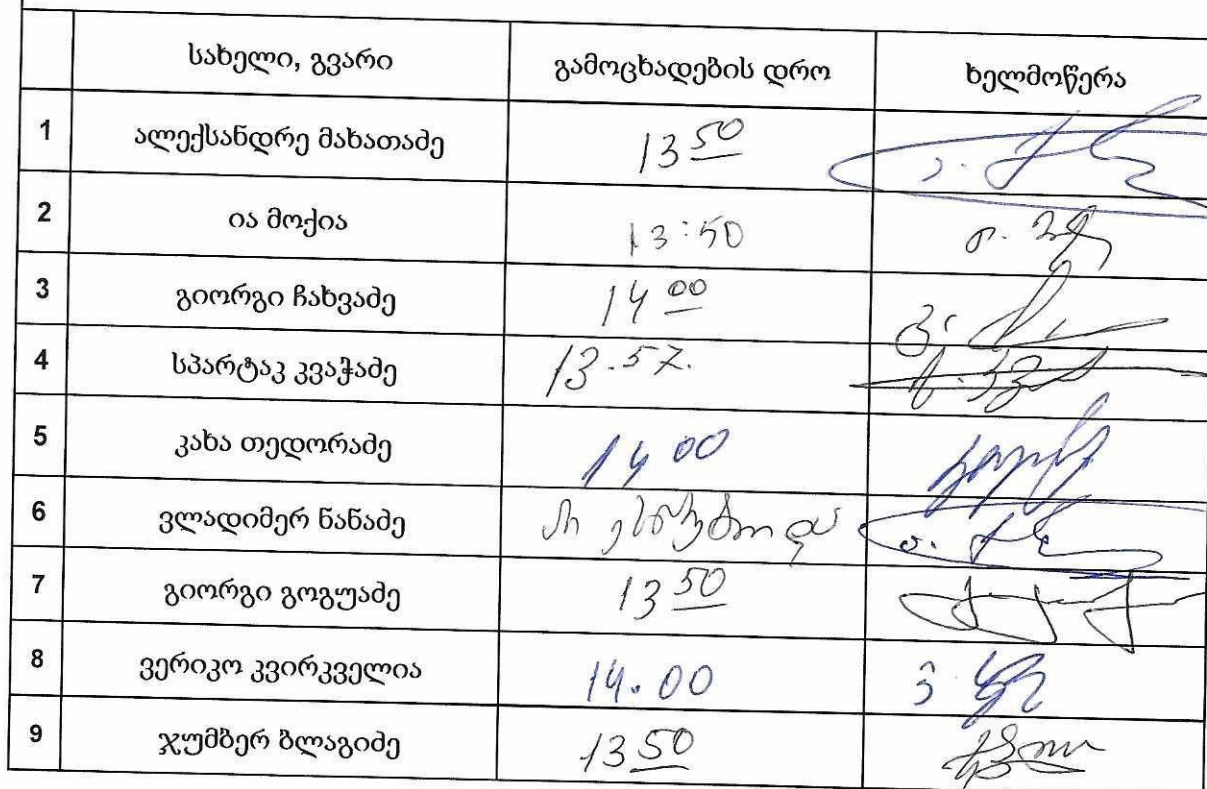 სახელი, გვარი გამოცხადების დრო ხელმოწერა
1 ალექსანდრე მახათაძე 13 50
2 ია მოქია 13:50
3 გიორგი ჩახვაძე 14 00
4 სპარტაკ კვაჭაძე 13.57.
5 კახა თედორაძე 14 00
6 ვლადიმერ ნანაძე
7 გიორგი გოგუაძე 13 50
8 ვერიკო კვირკველია 14.00
9 ჯუმბერ ბლაგიძე 13 50